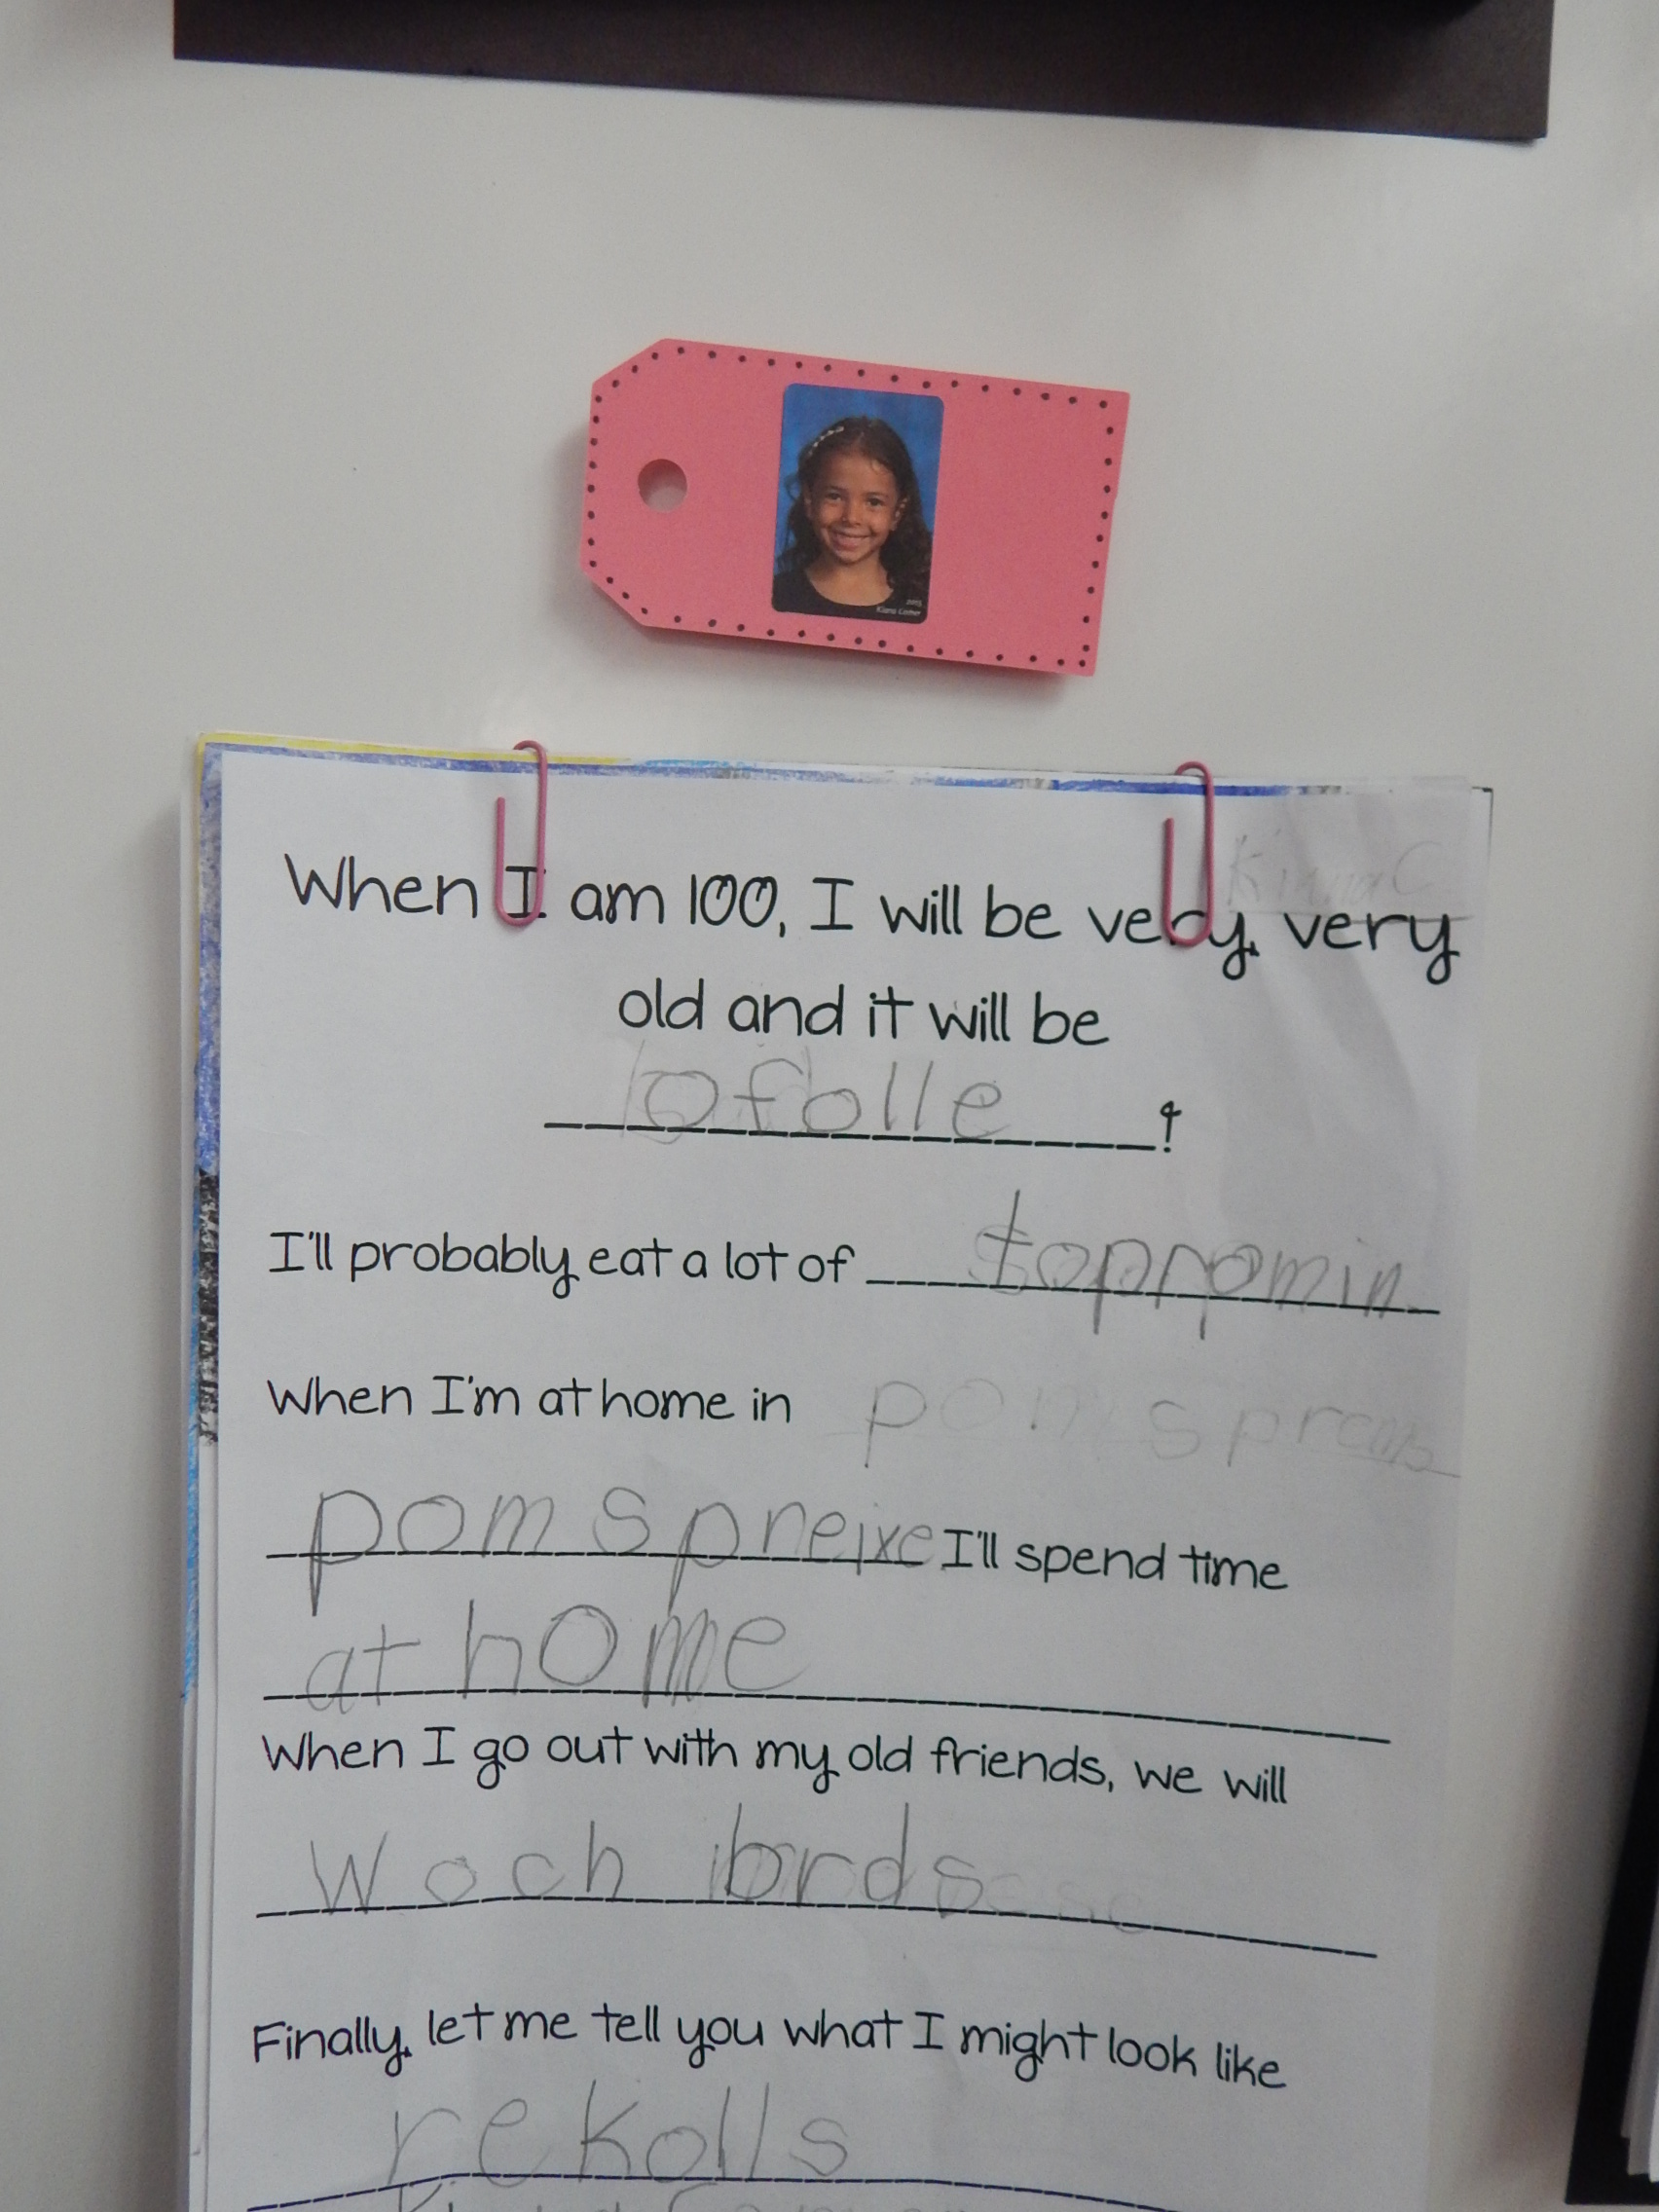 2015
Kiana Comer
Kiana C
When I am 100, I will be very, very
old and it will be
ofolle !
I'll probably eat a lot of toppromin
When I'm at home in pom spreens
pom spreixe I'll spend time
at home
When I go out with my old friends, we will
woch brds
Finally, let me tell you what I might look like
rekolls